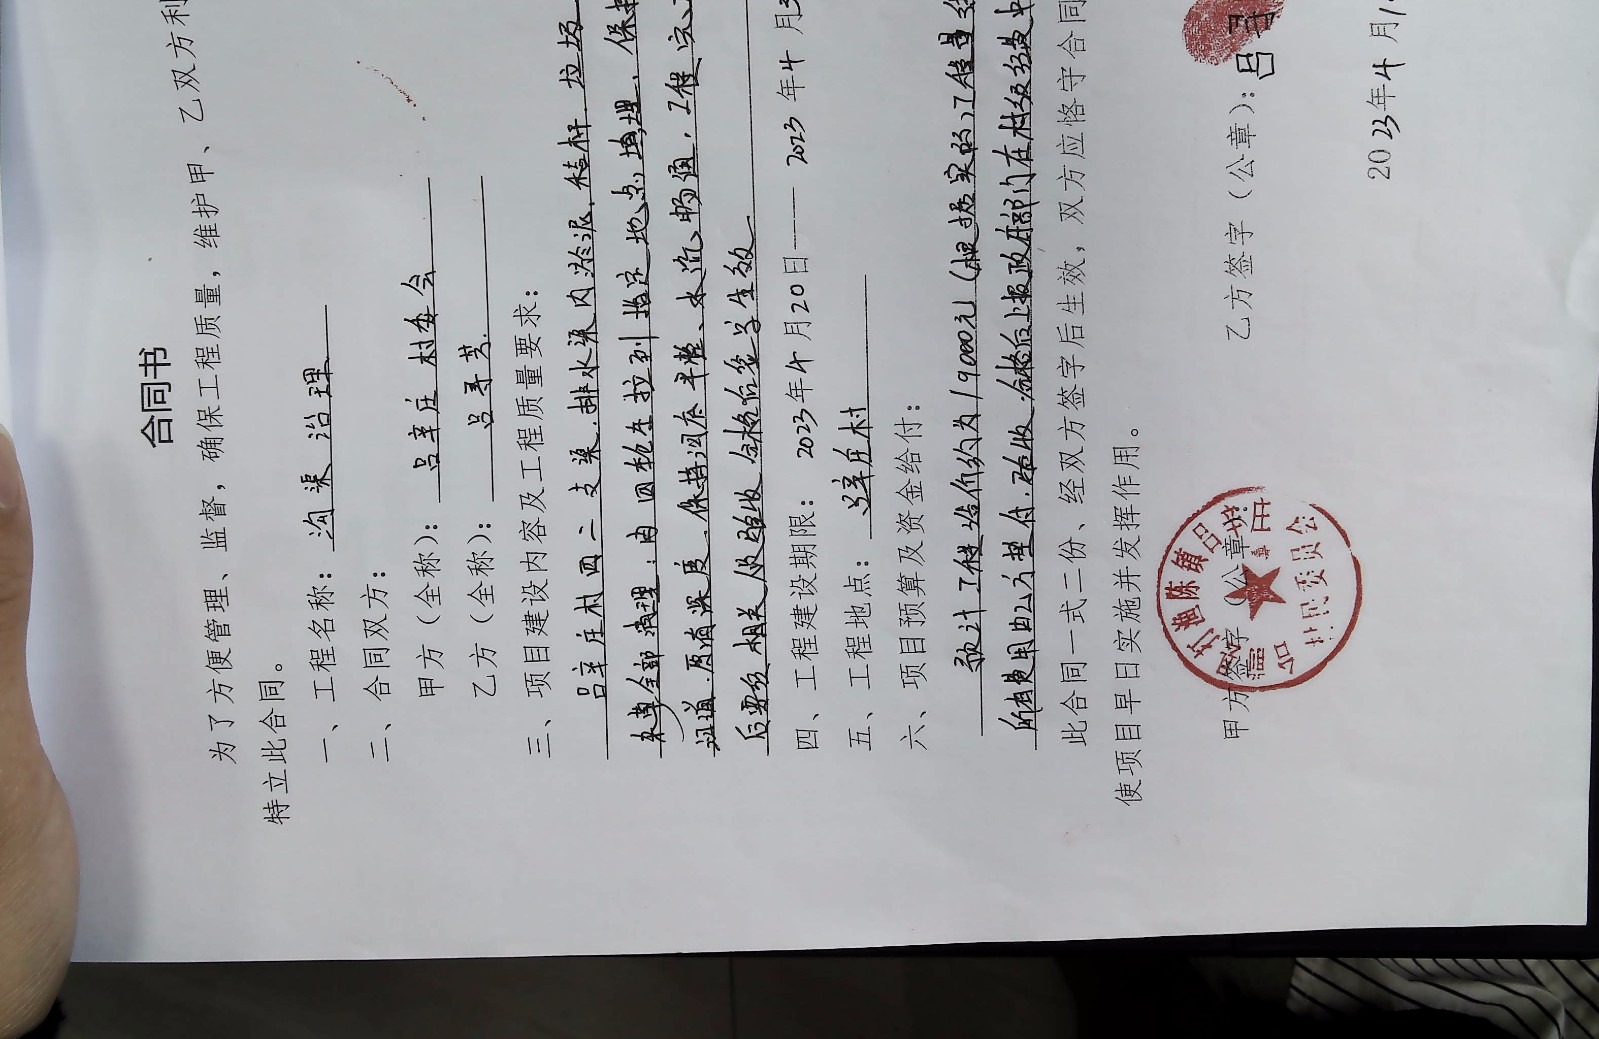 合同书
为了方便管理、监督，确保工程质量，维护甲、乙双方利
特立此合同。
一、工程名称：沟渠治理
二、合同双方：
甲方（全称）：吕辛庄村委会
乙方（全称）：吕寻芝
三、项目建设内容及工程质量要求：
吕辛庄村四二支渠.排水渠内淤泥.秸秆.垃圾
杂草全部清理；由四轮车拉到指定地点填埋，保护
沟道.原有深度，保持沟底平整、水流畅通，工程完
后需经相关人员验收合格后签字生效
四、工程建设期限： 2023年4月20日——2023年4月
五、工程地点：辛庄村
六、项目预算及资金给付：
预计工程造价约为19000元（根据实的工程量
所有费用由公方垫付.验收.合格后上报政府部门在村级经费中
此合同一式二份、经双方签字后生效，双方应恪守合同
使项目早日实施并发挥作用。
甲方签字（公章）： 乙方签字（公章）：吕寻
陈镇吕
村民委员会
2023年4月1